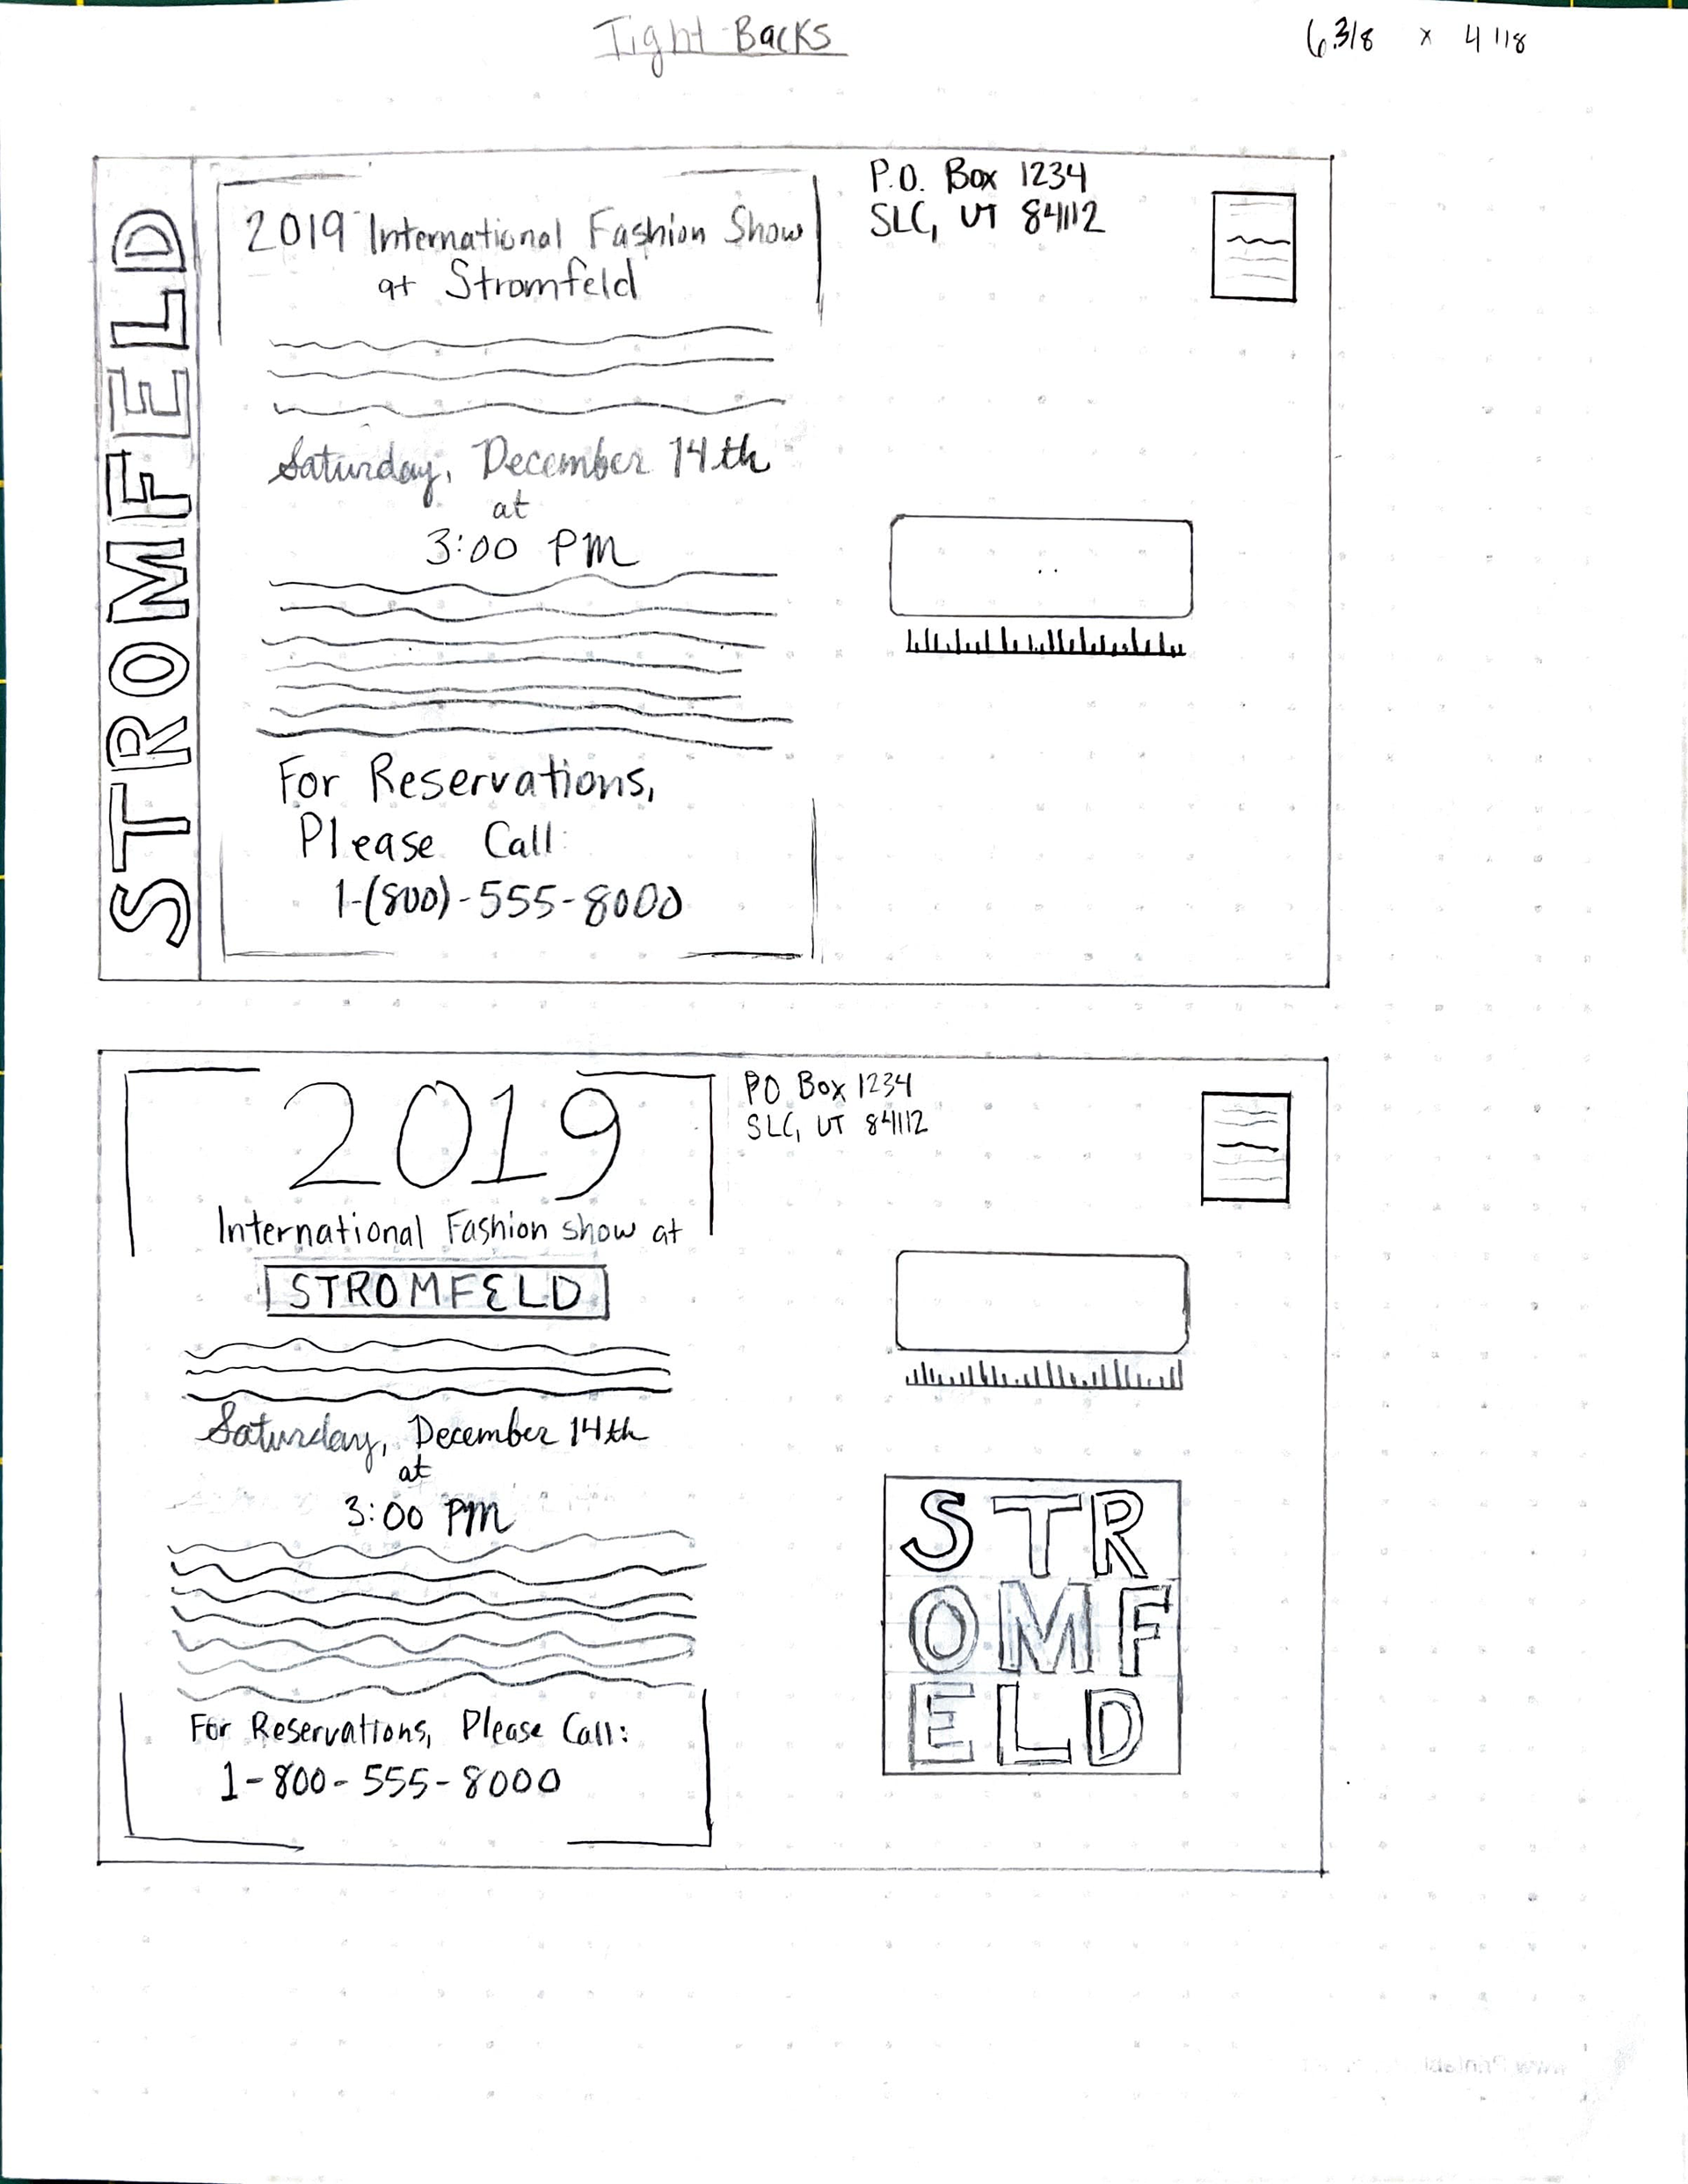 Tight Backs
6 3/8 x 4 1/8
STROMFELD
2019 International Fashion Show
at Stromfeld
Saturday, December 14th
at
3:00 PM
For Reservations,
Please Call:
1-(800)-555-8000
P.O. Box 1234
SLC, UT 84112
2019
International Fashion show at
STROMFELD
Saturday, December 14th
at
3:00 PM
For Reservations, Please Call:
1-800-555-8000
PO Box 1234
SLC, UT 84112
STR
OMF
ELD